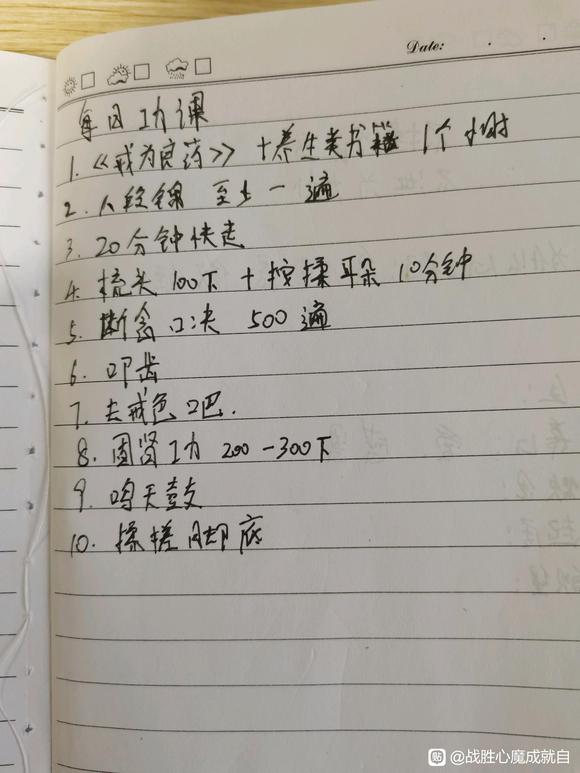 Date:
每日功课
1.《戒为良药》+养生类书籍 1个小时
2. 八段锦 至少一遍
3. 20分钟快走
4. 梳头100下+按揉耳朵10分钟
5. 断念口决 500遍
6. 叩齿
7. 去戒色吧.
8. 固肾功 200-300下
9. 鸣天鼓
10. 揉搓脚底
贴 @战胜心魔成就自